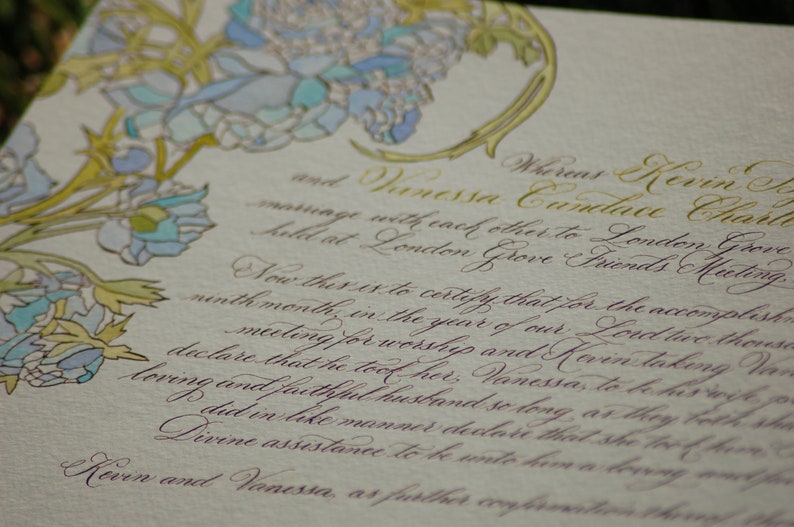 Whereas Kevin
and Vanessa Candace Charl
marriage with each other to London Grove
held at London Grove Friends Meeting.
Now this is to certify that for the accomplish
ninthmonth, in the year of our Lord two thousa
meeting for worship and Kevin taking Van
declare that he took her, Vanessa, to be his wife, pr
loving and faithful husband so long as they both sha
did in like manner declare that she took him,
Divine assistance to be unto him a loving and f
Kevin and Vanessa, as further confirmation thereof,